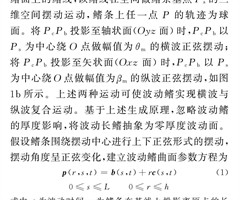 维空间摆动运动，鳍条上任一点 P 的轨迹为球
面。将 PₒPₛ 投影至轴状面(Oyz 面)时，PₒPₛ 以
Pₒ 为中心绕 O 点做幅值为 θₘ 的横波正弦摆动；
将 PₒPₛ 投影至矢状面(Oxz 面)时，PₒPₛ 以 Pₒ
为中心绕 O 点做幅值为 βₘ 的纵波正弦摆动，如图
1b 所示。上述两种运动可使波动鳍实现横波与
纵波复合运动。基于上述生成原理，忽略波动鳍
的厚度影响，将波动长鳍抽象为零厚度波动面。
假设鳍条围绕摆动中心进行上下正弦形式的摆动，
摆动角度呈正弦变化，建立波动鳍曲面参数方程为
p(r,s,t) = b(s,t) + rc(s,t) (1)
0 ≤ s ≤ L 0 ≤ r ≤ h